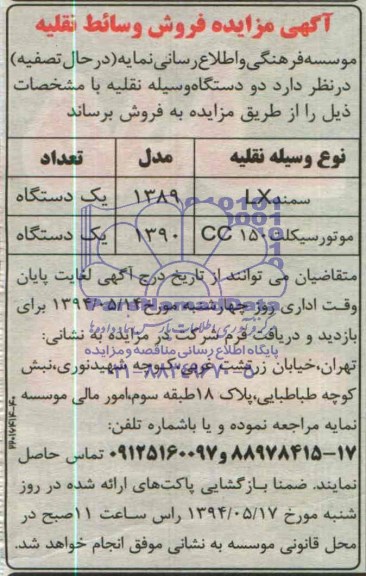 آگهی مزایده فروش وسائط نقلیه
موسسه فرهنگی و اطلاع رسانی نمایه (در حال تصفیه)
در نظر دارد دو دستگاه وسیله نقلیه با مشخصات
ذیل را از طریق مزایده به فروش برساند
نوع وسیله نقلیه مدل تعداد
سمند LX ۱۳۸۹ یک دستگاه
موتورسیکلت ۱۵۰ CC ۱۳۹۰ یک دستگاه
متقاضیان می توانند از تاریخ درج آگهی لغایت پایان
وقت اداری روز چهارشنبه مورخ ۱۳۹۴/۰۵/۱۴ برای
بازدید و دریافت فرم شرکت در مزایده به نشانی:
تهران، خیابان زرتشت غربی، کوچه شهیدنوری، نبش
کوچه طباطبایی، پلاک ۱۸ طبقه سوم، امور مالی موسسه
نمایه مراجعه نموده و یا باشماره تلفن:
۱۷-۸۸۹۷۸۴۱۵ و ۰۹۱۲۵۱۶۰۰۹۷ تماس حاصل
نمایند. ضمنا بازگشایی پاکت‌های ارائه شده در روز
شنبه مورخ ۱۳۹۴/۰۵/۱۷ راس ساعت ۱۱ صبح در
محل قانونی موسسه به نشانی موفق انجام خواهد شد.
پایگاه اطلاع رسانی مناقصه و مزایده